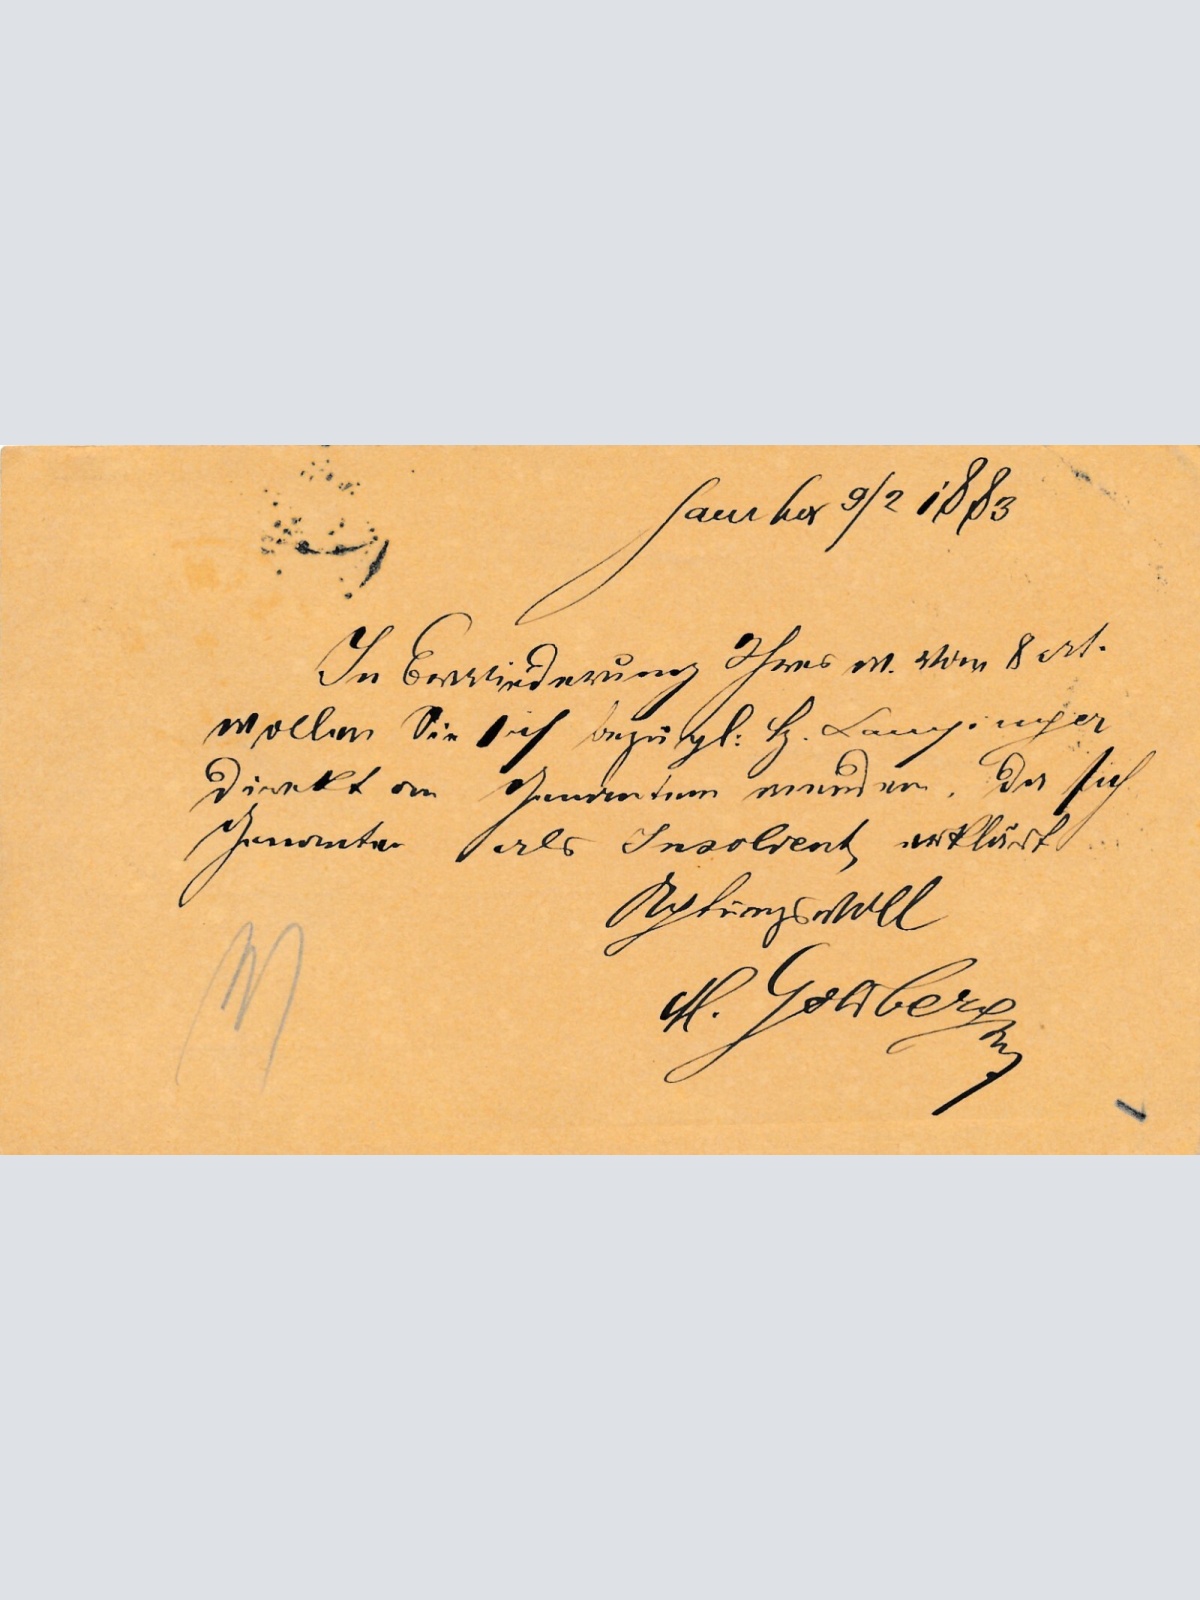 9/2 1883
In Erwiederung Ihres w. vom 8 crt.
wollen Sie sich bezügl: H.
direkt an Genannten wenden, da sich
Genannter als Insolvent erklärt
Achtungsvoll
M. Goldberg